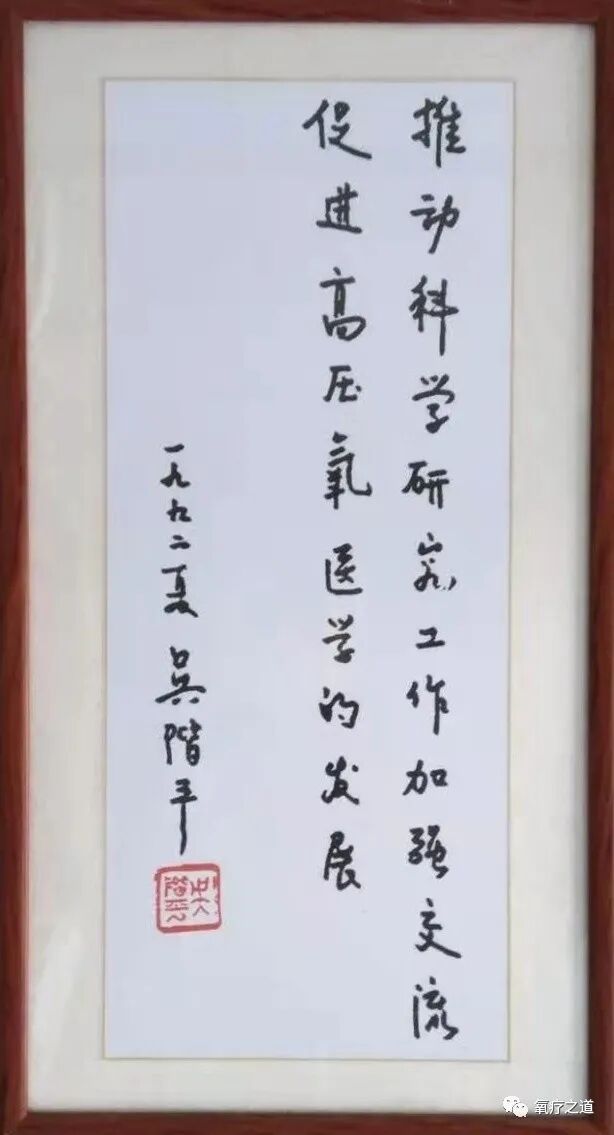 推动科学研究工作加强交流
促进高压氧医学的发展
一九九二夏 吴階平
吴階平
氧疗之道